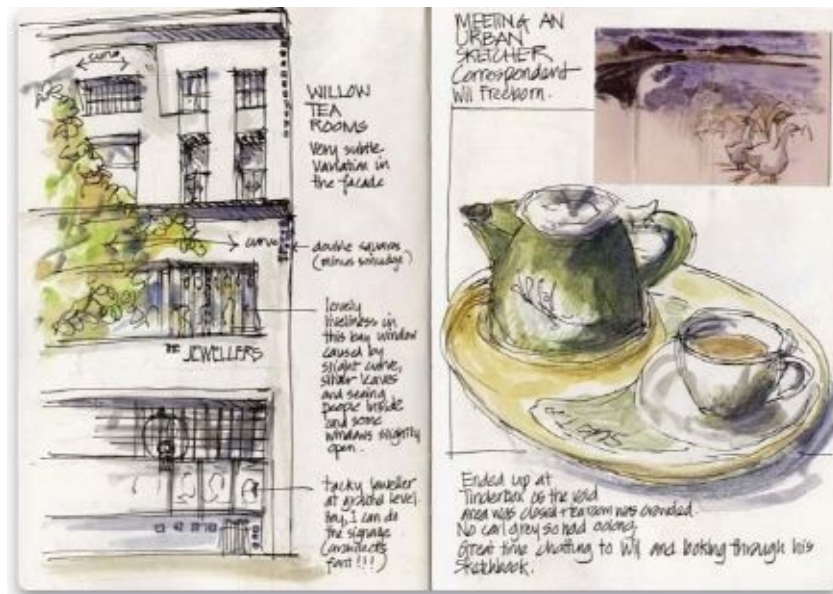 curve
WILLOW
TEA
ROOMS
Very subtle
Variation in
the facade
curve
double squares
(minus smudge)
lovely
liveliness in
this bay window
caused by
slight curve,
silver leaves
and seeing
people inside
and some
windows slightly
open.
THE JEWELLERS
tacky jeweller
at ground level.
hey, I can do
the signage
(architects
font!!!)
MEETING AN
URBAN
SKETCHER
Correspondent
Wil Freeborn.
Ended up at
Tinderbox as the
area was closed + tea room was crowded.
No earl grey so had oolong
Great time chatting to Wil and looking through his
Sketchbook.